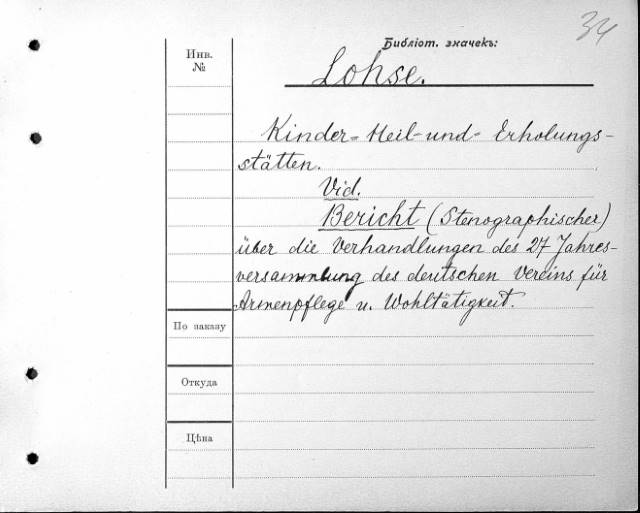 34
Библіот. значекъ:
Инв.
№
Lohse.
Kinder-Heil-und-Erholungs-
stätten.
Vid.
Bericht (Stenographischer)
über die Verhandlungen des 27 Jahres-
versammlung des deutschen Vereins für
Armenpflege u. Wohltätigkeit.
По заказу
Откуда
Цѣна